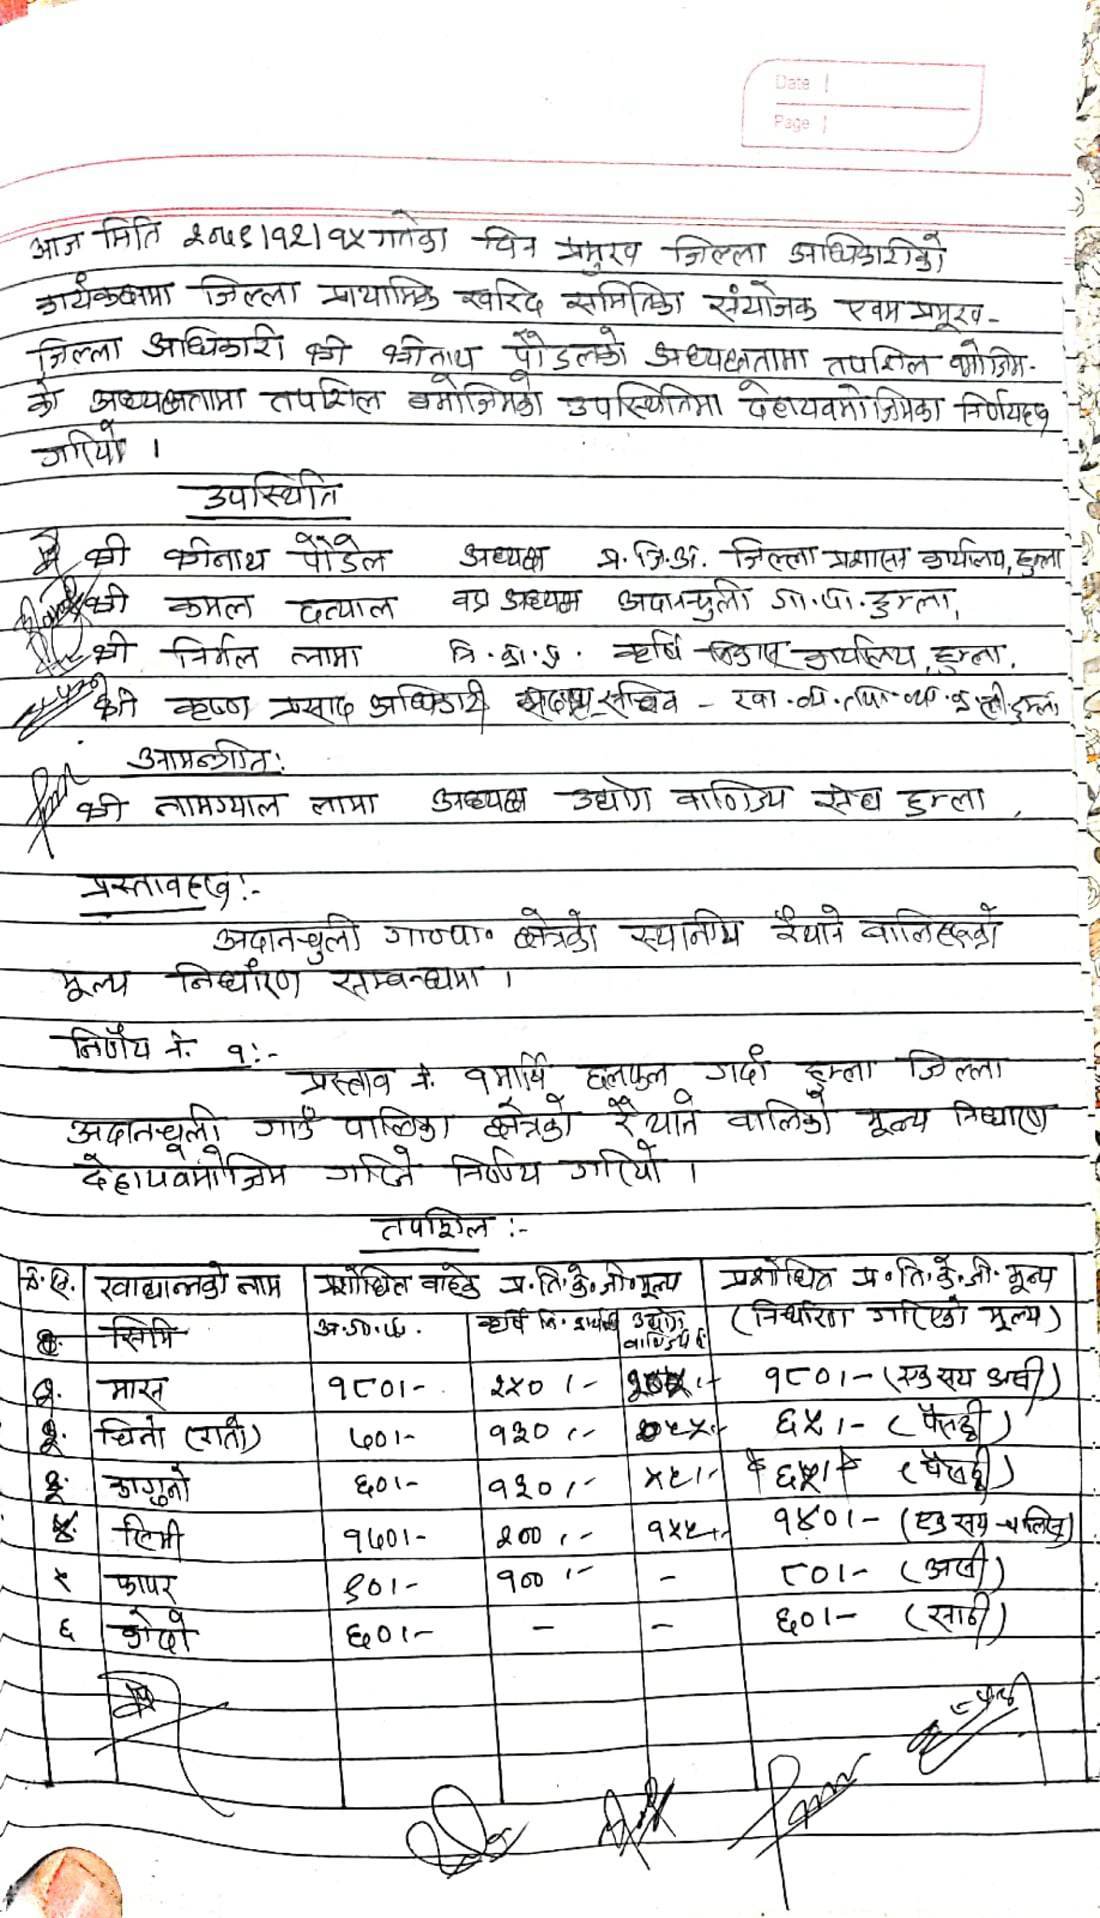 Date
Page
आज मिति २०७६।१२।१५ गतेका दिन प्रमुख जिल्ला अधिकारीको
कार्यकक्षमा जिल्ला प्राथामिक खरिद समितिका संयोजक एवम प्रमूख-
जिल्ला अधिकारी श्री श्रीनाथ पौडेलको अध्यक्षतामा तपशिल बमोजिम-
को अध्यक्षतामा तपशिल बमोजिमको उपस्थितिमा देहायवमोजिमका निर्णयहरु
गरियो ।
उपस्थिति
श्री श्रीनाथ पौडेल अध्यक्ष प्र.जि.अ. जिल्ला प्रशासन कार्यालय, हुम्ला
श्री कमल दत्याल अध्यक्ष अदानचुली गा.पा. हुम्ला,
श्री निर्मल लामा नि.का.प्र. कृषि विकास कार्यालय, हुम्ला.
श्री कृष्ण प्रसाद अधिकारी सदस्य सचिव - खा.व्य.तथा.व्या.क.ली.हुम्ला
आमन्त्रीत:
श्री नामग्याल लामा अध्यक्ष उद्योग वाणिज्य संघ हुम्ला,
प्रस्तावहरु:-
अदानचुली गा०पा० क्षेत्रको स्थानीय रैथाने बालिहरुको
मूल्य निर्धारण सम्बन्धमा ।
निर्णय नं. १:-
प्रस्ताव नं. १ माथि छलफल गर्दा हुम्ला जिल्ला
अदानचूली गाउँ पालिका क्षेत्रको रैथाने वालिको मूल्य निर्धारण
देहायवमोजिम गरिने निर्णय गरियो ।
तपशिल:-
क्र.सि. खाद्यान्नको नाम प्रशोधित बाहेक प्र.ति.के.जी.मूल्य प्रशोधित प्र.ति.के.जी.मूल्य
सिमि अ.गा.पा. कृषि वि.कार्यालय उद्योग वाणिज्य सं (निर्धारित गरिएको मूल्य)
१. मास १८०।- २५०।- १८०।- (एक सय असी)
२. चिनो (रातो) ७०।- १३०।- ६५।- (पैसठ्ठी)
३. कागुनो ६०।- १३०।- ५५।- ६५।- (पैसठ्ठी)
४. सिमी १७०।- २००।- १५५।- १४०।- (एक सय चालिस)
५ फापर ९०।- १००।- - ८०।- (असी)
६ कोदो ६०।- - - ६०।- (साठी)